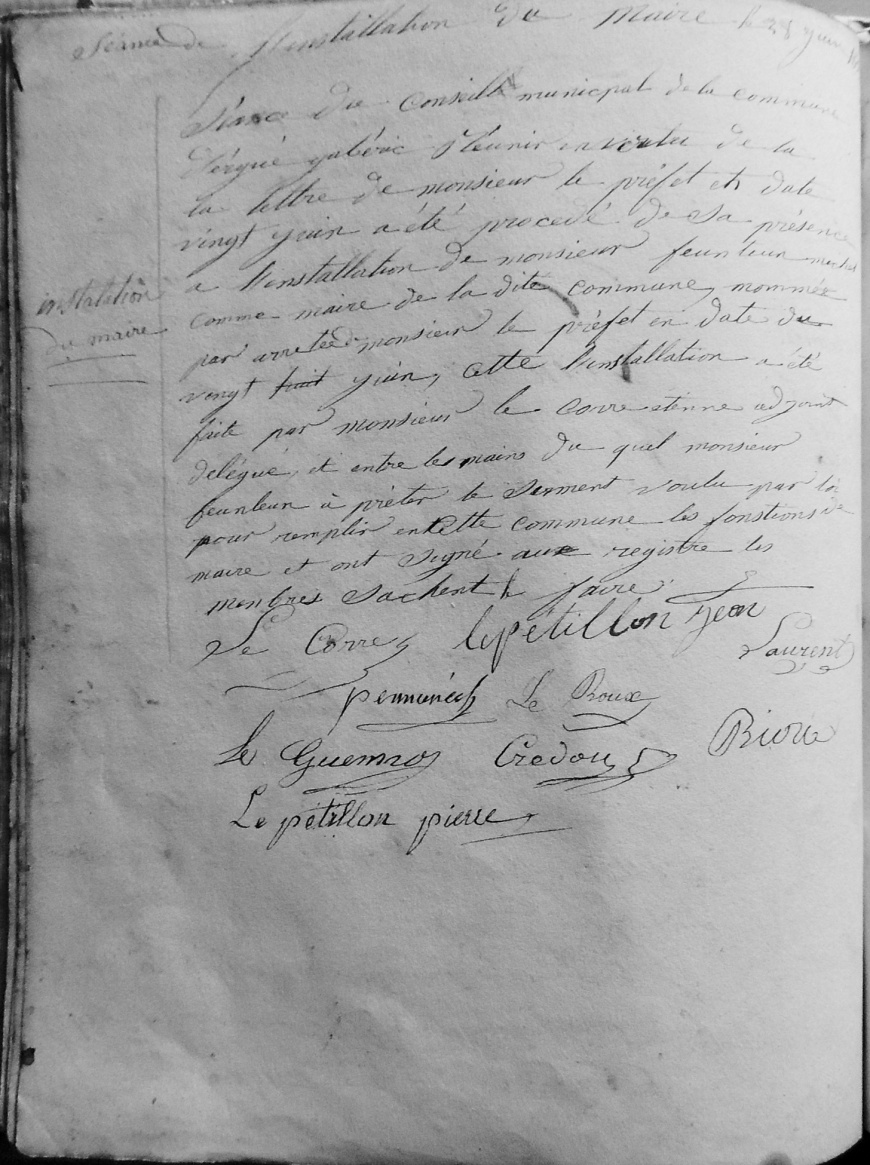 Séance de l'instalation du Maire le 28 juin
Séance du Conseille municpal de la commune
D'ergué gabéric Réunir en vertu de la
la lettre de monsieur le préfet en date
vingt juin a été procedé de sa présence
a l'enstallation de monsieur feunteun michel
comme maire de la dite commune, nommée
par arretée de monsieur le préfet en date du
vingt huit juin, cette l'enstallation a été
faite par monsieur le Corre etienne adjoint
delégué, et entre les mains du quel monsieur
feunteun à prêter le Serment voulu par loi
pour remplir en cette commune les fonstions de
maire et ont signé aux registre les
menbres Sachent le faire.
instalation
du maire
Le Corre lepétillon jean Laurent
pennanéch Le Roux
Le Guenno Credou Riou
Le pétillon pierre